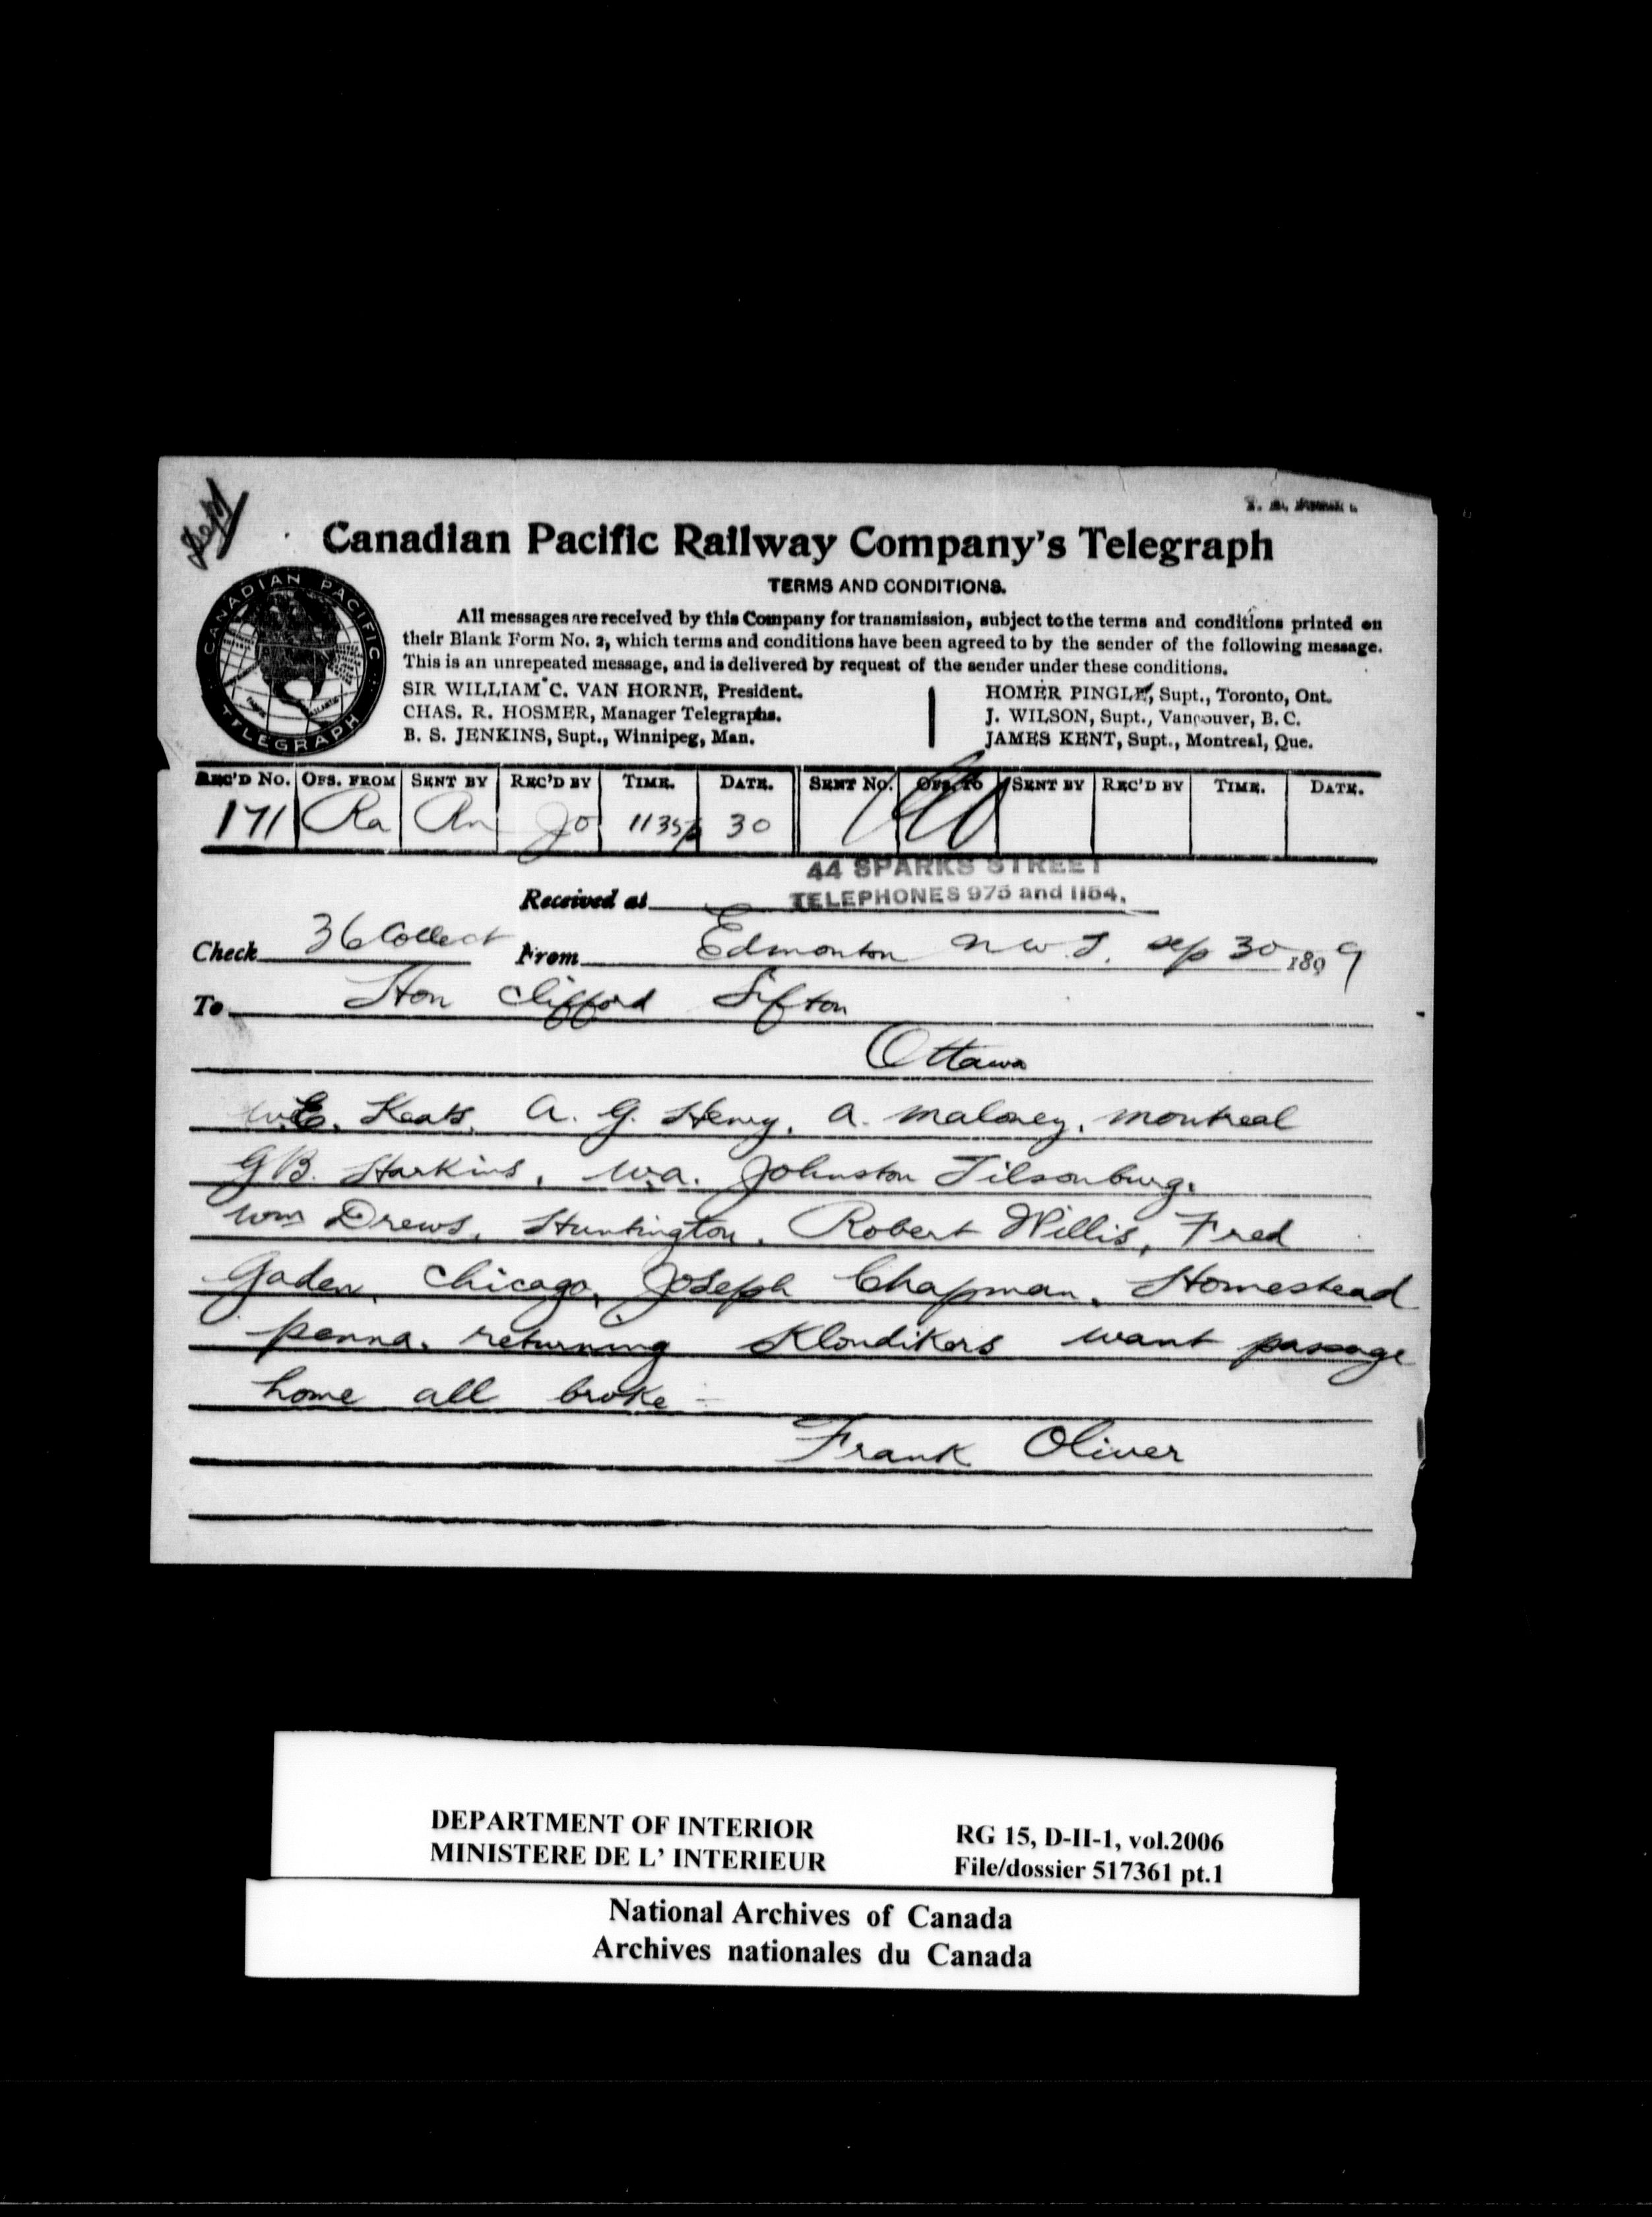 Dept
Canadian Pacific Railway Company's Telegraph
TERMS AND CONDITIONS.
All messages are received by this Company for transmission, subject to the terms and conditions printed on
their Blank Form No. 2, which terms and conditions have been agreed to by the sender of the following message.
This is an unrepeated message, and is delivered by request of the sender under these conditions.
SIR WILLIAM C. VAN HORNE, President.
CHAS. R. HOSMER, Manager Telegraphs.
B. S. JENKINS, Supt., Winnipeg, Man.
HOMER PINGLE, Supt., Toronto, Ont.
J. WILSON, Supt., Vancouver, B. C.
JAMES KENT, Supt., Montreal, Que.
CANADIAN PACIFIC TELEGRAPH
REC'D NO. OFS. FROM SENT BY REC'D BY TIME. DATE. SENT NO. OFS. TO SENT BY REC'D BY TIME. DATE.
171 Ra Rn Jo 1135 30
44 SPARKS STREET
Received at TELEPHONES 975 and 1154.
Check 36 Collect From Edmonton N W T. Sep 30 1899
To Hon Clifford Sifton
Ottawa
W.E. Keats, A. G. Henry, A. Maloney, Montreal
G B. Harkins, W.A. Johnston Tilsonburg.
Wm Drews, Huntington, Robert Willis, Fred
Gaden, Chicago, Joseph Chapman, Homestead
penna. returning Klondikers want passage
home all broke -
Frank Oliver
DEPARTMENT OF INTERIOR
MINISTERE DE L' INTERIEUR
RG 15, D-II-1, vol.2006
File/dossier 517361 pt.1
National Archives of Canada
Archives nationales du Canada